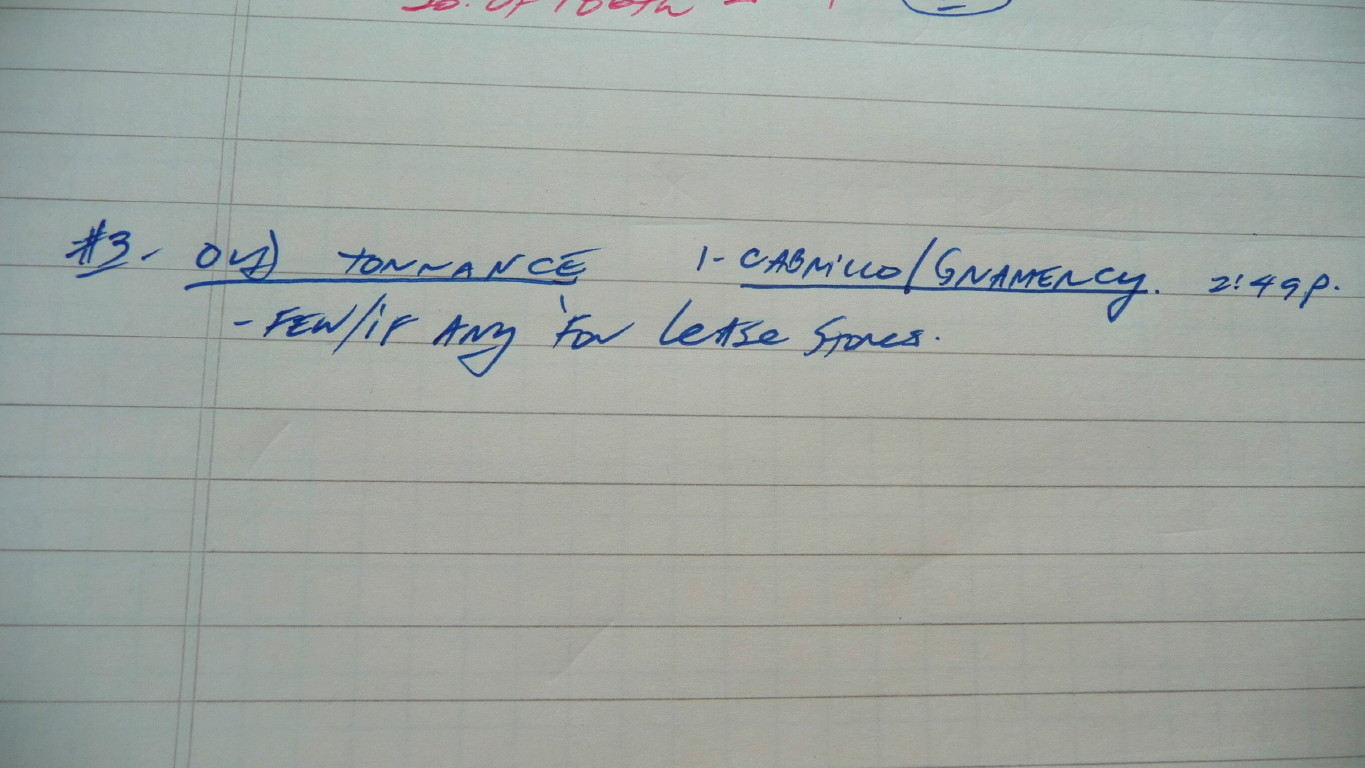 So. of
#3- Old TORRANCE 1- CABRILLO/GRAMERCY. 2:49p.
- FEW/iF ANy For Lease Stores.